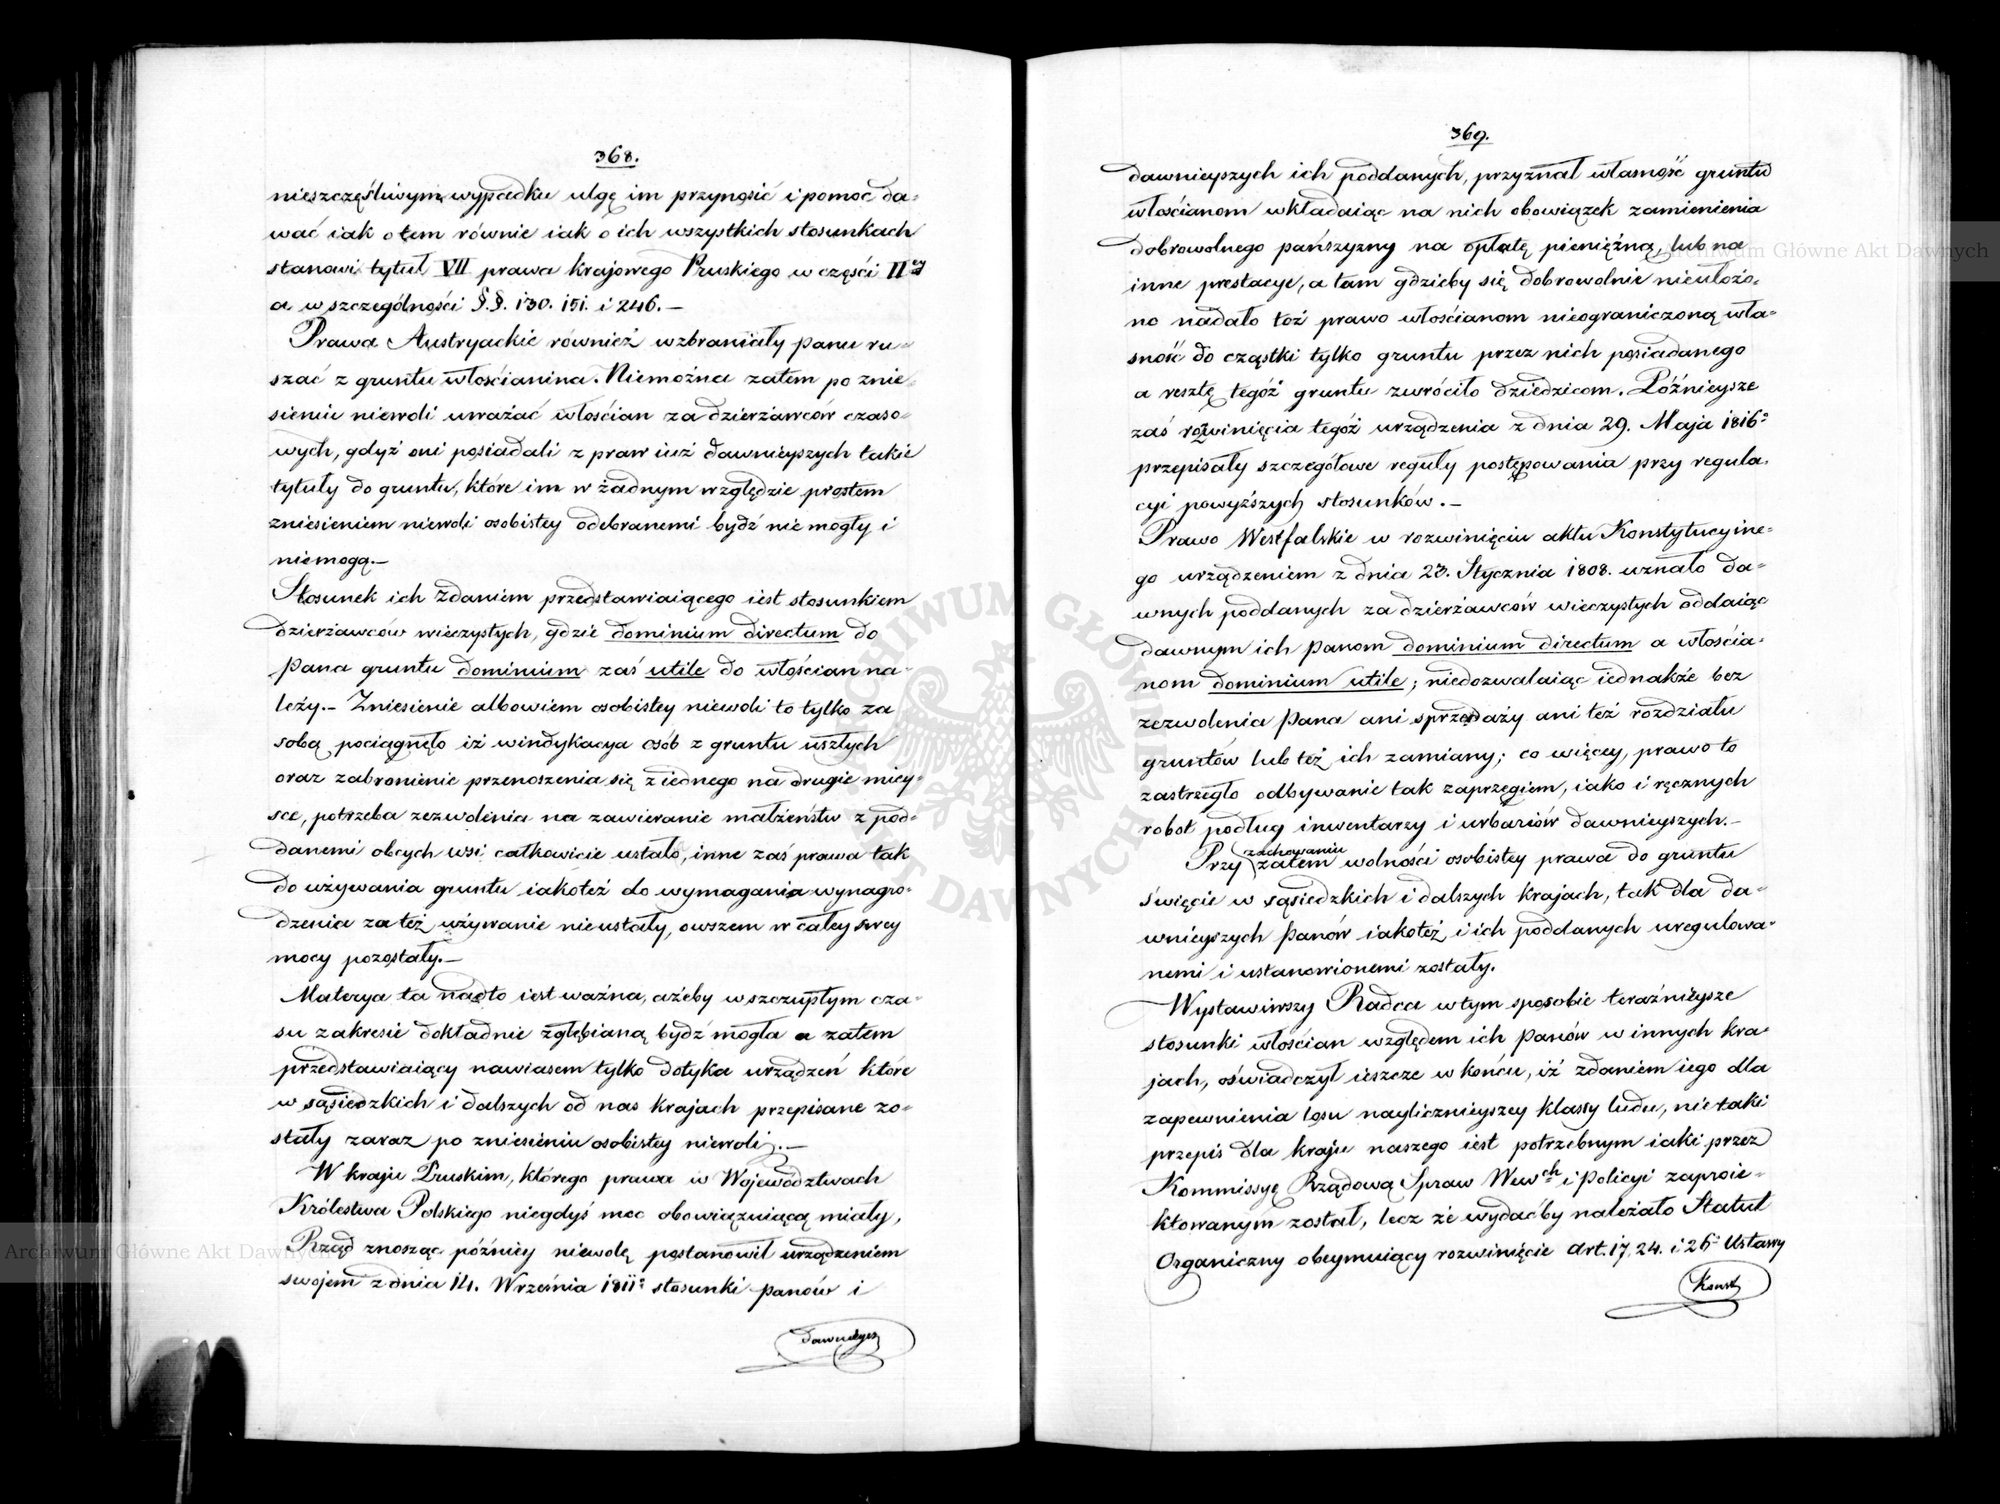 368.
nieszczęśliwym wypadku ulgę im przynosić i pomoc da-
wać iak o tem równie iak o ich wszystkich stosunkach
stanowi tytuł VII prawa krajowego Pruskiego w części IIey
a w szczególności §.§. 130. 151. i 246.—
Prawa Austryackie również wzbraniały panu ru-
szać z gruntu włościanina. Niemożna zatem po znie-
sieniu niewoli uważać włościan za dzierżawców czaso-
wych, gdyż oni posiadali z praw iuż dawnieyszych takie
tytuły do gruntu, które im w żadnym względzie prostem
zniesieniem niewoli osobistey odebranemi bydź nie mogły i
niemogą.—
Stosunek ich zdaniem przedstawiaiącego iest stosunkiem
dzierżawców wieczystych, gdzie dominium directum do
Pana gruntu dominium zaś utile do włościan na-
leży.— Zniesienie albowiem osobistey niewoli to tylko za
sobą pociągnęło iż windykacya osób z gruntu uszłych
oraz zabronienie przenoszenia się z iednego na drugie miey-
sce, potrzeba zezwolenia na zawieranie małżeństw z pod-
danemi obcych wsi całkowicie ustało, inne zaś prawa tak
do używania gruntu iakoteż do wymagania wynagro-
dzenia za też używanie nieustały, owszem w całey swey
mocy pozostały.—
Materya ta nadto iest ważna, ażeby w szczupłym cza-
su zakresie dokładnie zgłębianą bydź mogła a zatem
przedstawiaiący nawiasem tylko dotyka urządzeń które
w sąsiedzkich i dalszych od nas krajach przepisane zo-
stały zaraz po zniesieniu osobistey niewoli.—
W kraju Pruskim, którego prawa w Województwach
Królestwa Polskiego niegdyś moc obowiązuiącą miały,
Rząd znosząc późniey niewolę postanowił urządzeniem
swojem z dnia 14. Września 1811o stosunki panów i
dawnieysz
369.
dawnieyszych ich poddanych, przyznał własność gruntu
włościanom wkładaiąc na nich obowiązek zamienienia
dobrowolnego pańszyzny na opłatę pieniężną, lub na
inne prestacye, a tam gdzieby się dobrowolnie nieułożo-
no nadało toż prawo włościanom nieograniczoną wła-
sność do cząstki tylko gruntu przez nich posiadanego
a resztę tegóż gruntu zwróciło dziedzicom. Późnieysze
zaś rozwinięcia tegóż urządzenia z dnia 29. Maja 1816o
przepisały szczegółowe reguły postępowania przy regula-
cyi powyższych stosunków.—
Prawo Westfalskie w rozwinięciu aktu Konstytucyjne-
go urządzeniem z dnia 23. Stycznia 1808. uznało da-
wnych poddanych za dzierżawców wieczystych oddaiąc
dawnym ich Panom dominium directum a włościa-
nom dominium utile; niedozwalaiąc iednakże bez
zezwolenia Pana ani sprzedaży ani też rozdziału
gruntów lub też ich zamiany; co więcey, prawo to
zastrzegło odbywanie tak zaprzęgiem, iako i ręcznych
robot podług inwentarzy i urbariów dawnieyszych.—
Przy zachowaniu zatem wolności osobistey prawa do gruntu
święcie w sąsiedzkich i dalszych krajach, tak dla da-
wnieyszych Panów iakoteż i ich poddanych uregulowa-
nemi i ustanowionemi zostały.
Wystawiwszy Radca w tym sposobie teraźnieysze
stosunki włościan względem ich Panów w innych kra-
jach, oświadczył ieszcze w końcu, iż zdaniem iego dla
zapewnienia losu naylicznieyszey klassy ludu, nie taki
przepis dla kraju naszego iest potrzebnym iaki przez
Kommissyę Rządową Spraw Wewch i Policyi zaproie-
ktowanym został, lecz że wydaćby należało Statut
Organiczny obeymuiący rozwinięcie Art. 17, 24. i 26o Ustawy
Konst
Archiwum Główne Akt Dawnych
Archiwum Główne Akt Dawnych
ARCHIWUM GŁÓWNE AKT DAWNYCH